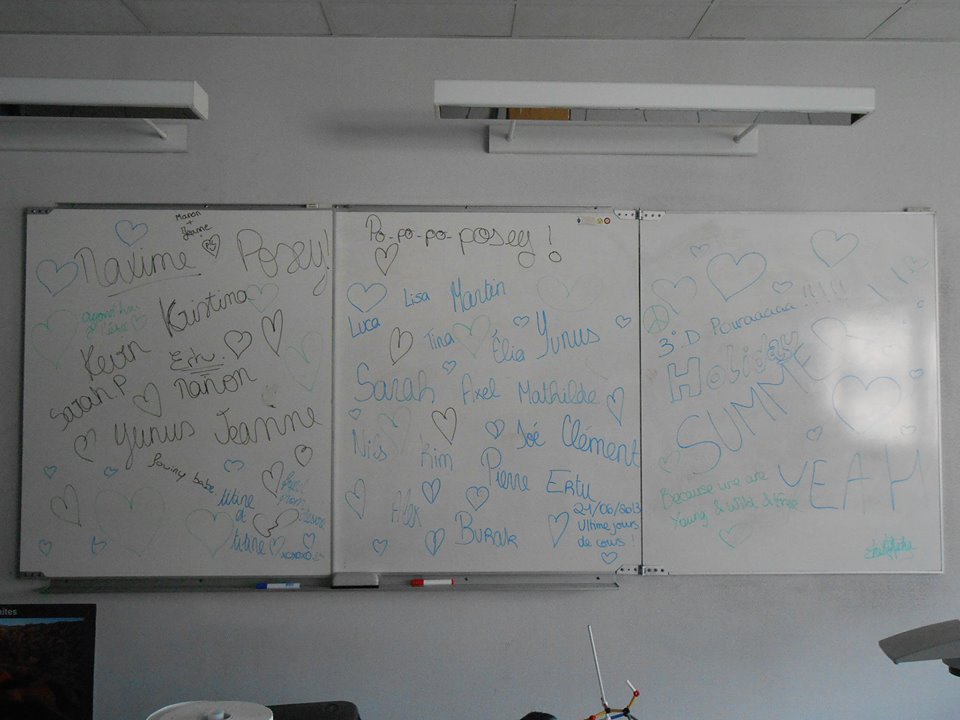 Manon
+
Jeanne
Maxime Posey!
aujourd'hui
Kristina
Kevin
Ertu
Sarah P
Manon
Yunus Jeanne
titine
et
titine
xoxoxo
Po-po-po-posey !
Lisa Martin
Luca
Tina
Élia Yunus
Sarah Axel Mathilde
Nils
Kim
José Clément
Pierre Ertu
Alex
Burak
21/06/2013
Ultime jours
de cours !
3°D Pouraaaaa !!!!!
Holiday
SUMMER
YEAH
Because we are
Young & Wild & free